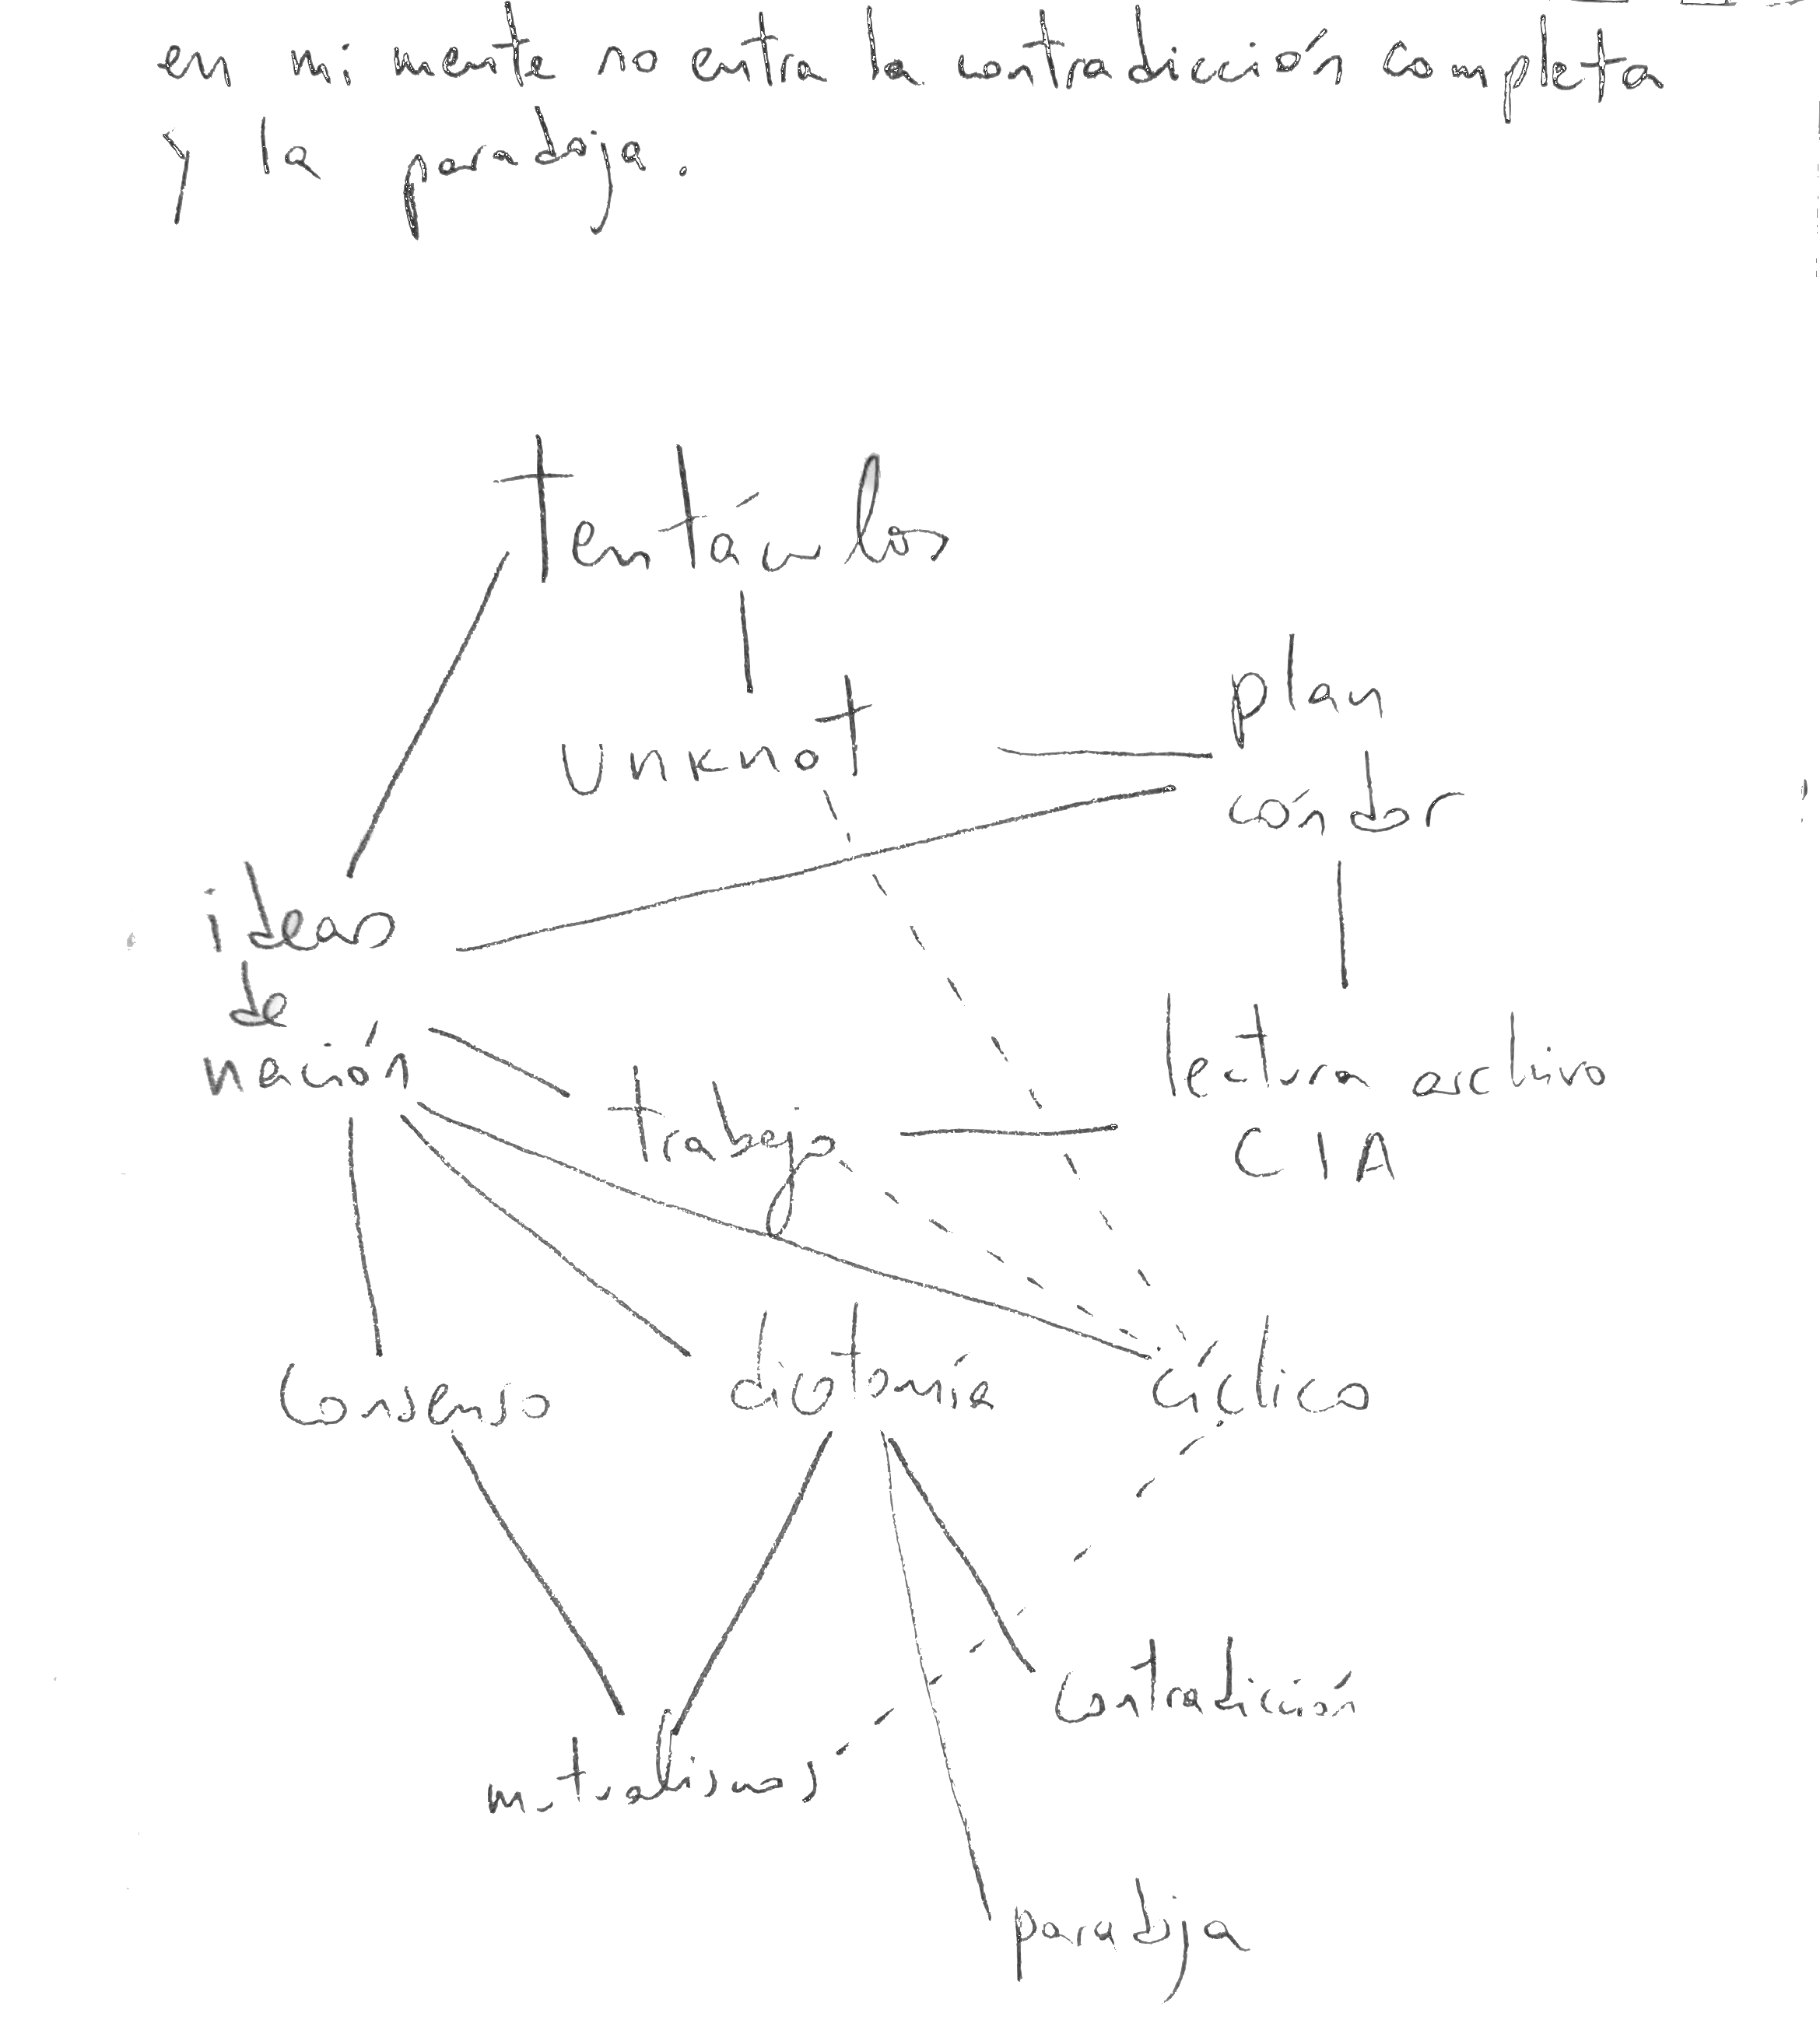 en mi mente no entra la contradicción completa
y la paradoja.
tentáculos
unknot
plan
cóndor
ideas
de
nación
lectura archivo
CIA
trabajo
consenso
dicotomía
cíclico
contradicción
mutualismos
paradoja